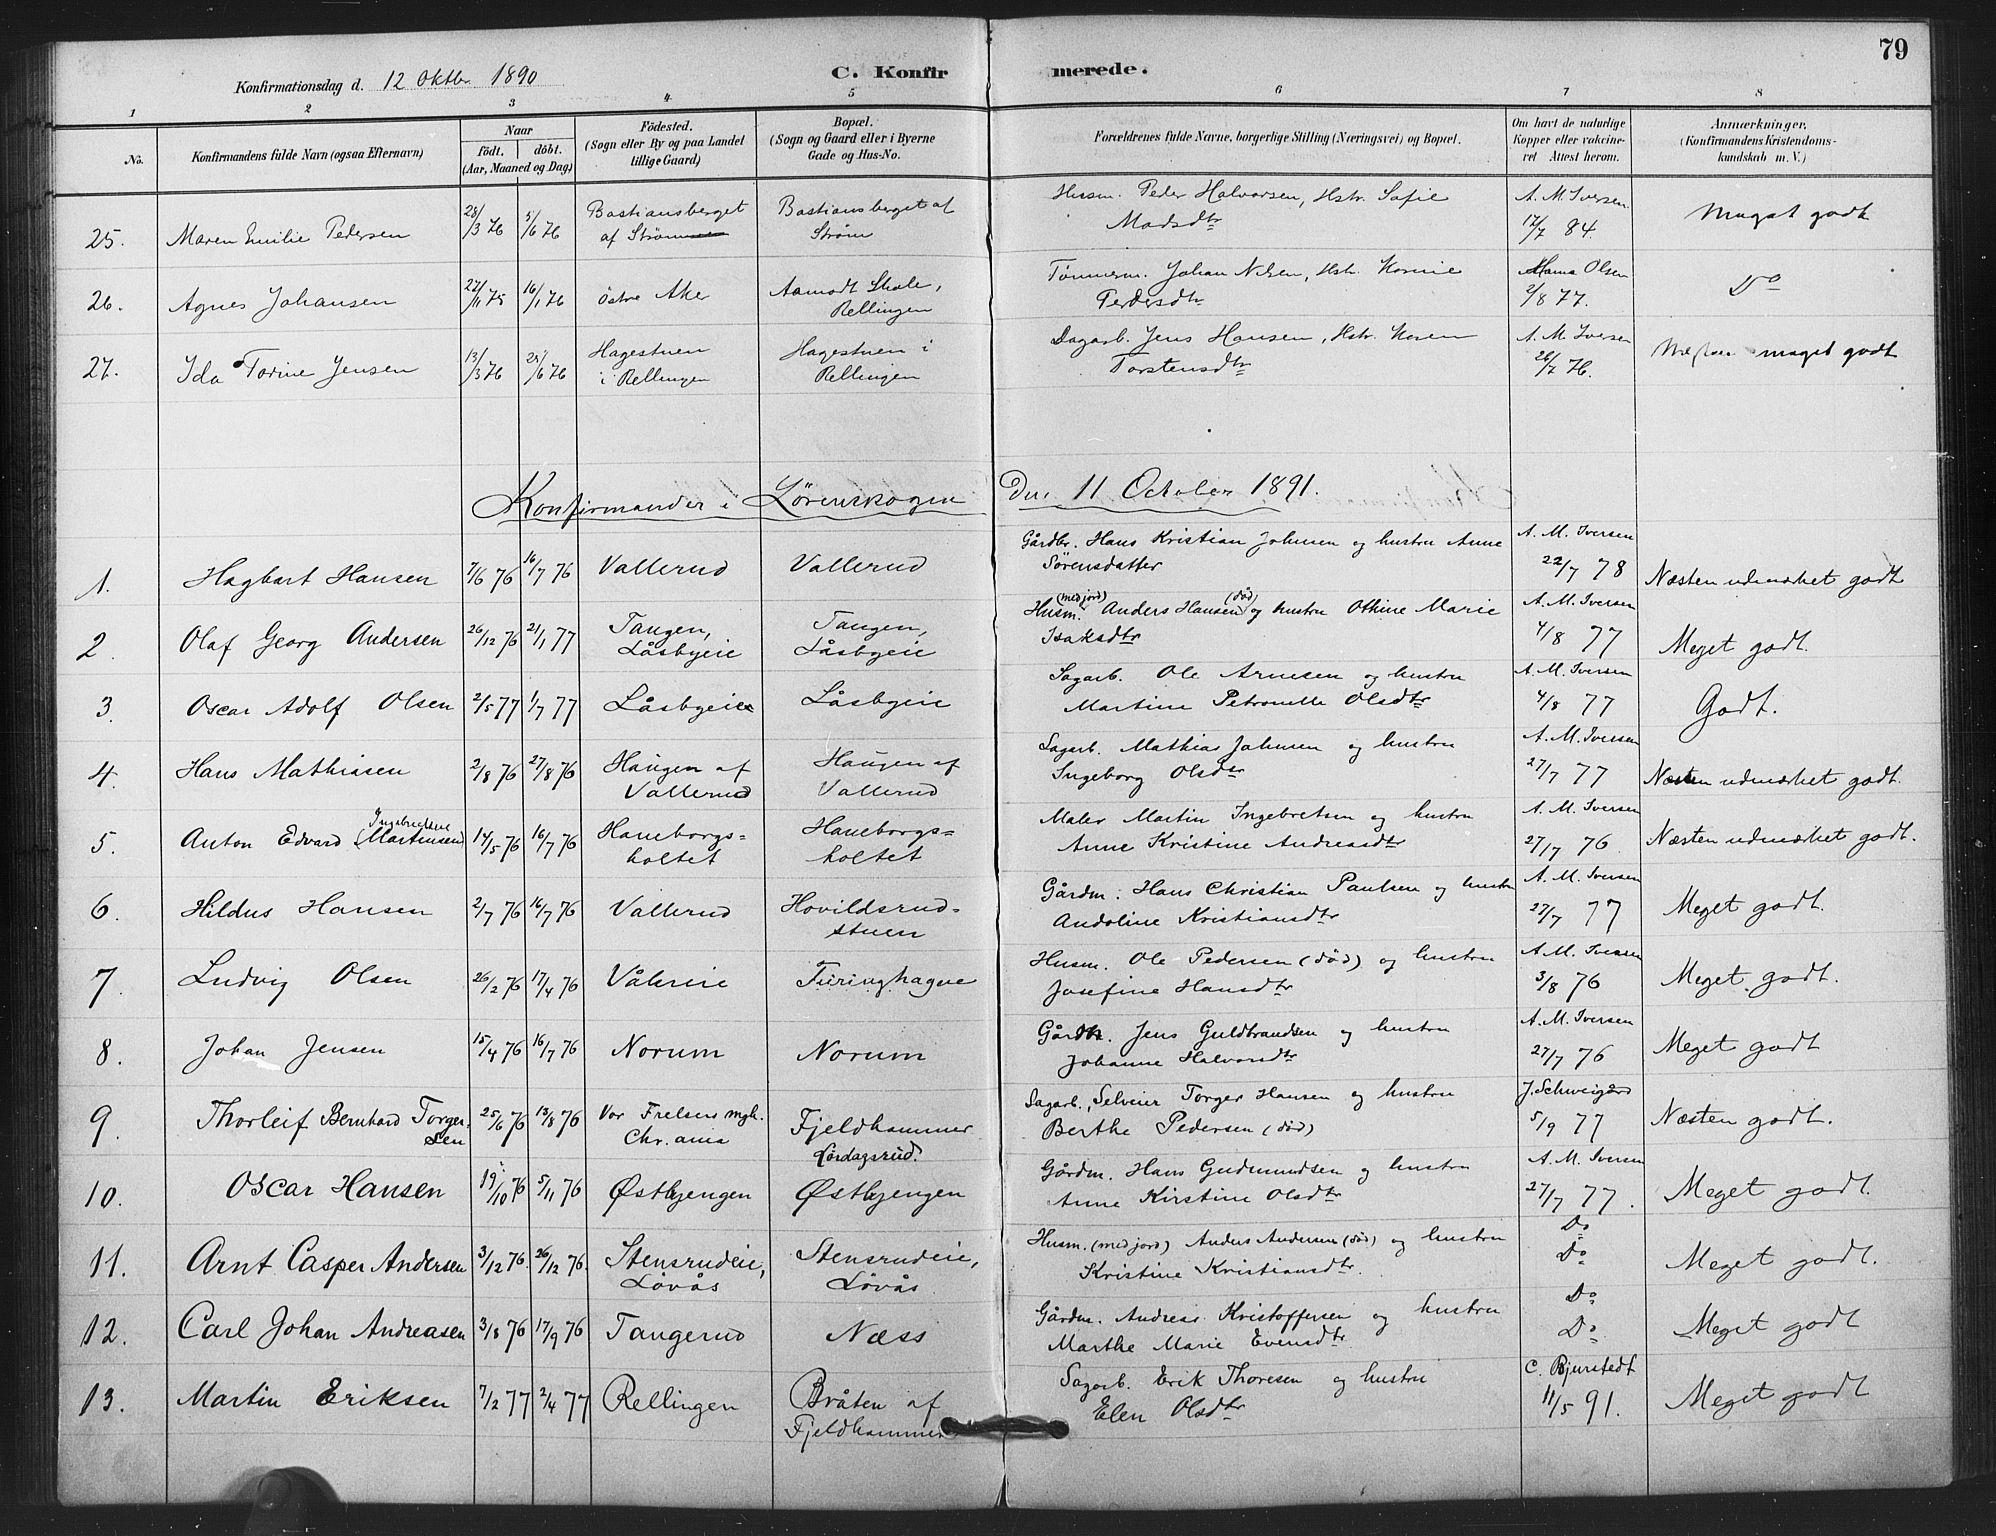 79
Konfirmationsdag d. 12 Oktbr. 1890
C. Konfirmerede.
1 2 3 4 5 6 7 8
No.
Konfirmandens fulde Navn (ogsaa Efternavn)
Naar
födt. döbt.
(Aar, Maaned og Dag)
Födested.
(Sogn eller By og paa Landet
tillige Gaard)
Bopæl.
(Sogn og Gaard eller i Byerne
Gade og Hus-No.
Forældrenes fulde Navne, borgerlige Stilling (Næringsvei) og Bopæl.
Om havt de naturlige
Kopper eller vakcine-
ret Attest herom.
Anmærkninger.
(Konfirmandens Kristendoms-
kundskab m. V.)
25. Maren Emilie Pedersen 28/3 76 5/6 76 Bastiansberget
af Strøm
Bastiansberget af
Strøm
Husm. Peder Halvorsen, Hstr. Sofie
Madsdtr
A. M. Iversen
17/7 84.
Meget godt
26. Agnes Johansen 27/11 75 16/1 76 Østre Aker Aamodt Skole,
Rellingen
Tømmerm. Johan Nilsen, Hstr. Karine
Pedersdtr
Hans Olsen
2/8 77.
Do
27. Ida Torine Jensen 13/3 76 25/6 76 Hagestuen
i Rellingen
Hagestuen i
Rellingen
Dagarb. Jens Hansen, Hstr. Karen
Torstensdtr
A. M. Iversen
26/7 76.
Næsten meget godt
Konfirmander i Lørenskogen Den 11 October 1891.
1. Hagbart Hansen 7/6 76 16/7 76 Vallerud Vallerud
Gårdbr. Hans Kristian Johnsen og hustru Anne
Sørensdatter
A. M. Iversen
22/7 78
Næsten udmærket godt
2. Olaf Georg Andersen 26/12 76 21/1 77 Tangen,
Låsbyeie
Tangen,
Låsbyeie
Husm. (med jord) Anders Hansen (død) og hustru Othine Marie
Isaksdtr
A. M. Iversen
4/8 77
Meget godt.
3. Oscar Adolf Olsen 2/5 77 1/7 77 Låsbyeie Låsbyeie
Sagarb. Ole Arnesen og hustru
Martine Petronelle Olsdtr
A. M. Iversen
4/8 77
Godt.
4. Hans Mathiasen 2/8 76 27/8 76 Haugen af
Vallerud
Haugen af
Vallerud
Sagarb. Mathias Johnsen og hustru
Ingeborg Olsdtr
A. M. Iversen
27/7 77
Næsten udmærket godt.
5. Anton Edvard (Martinsen) Ingebretsen 14/5 76 16/7 76 Haneborgs=
holtet
Haneborgs=
holtet
Maler Martin Ingebretsen og hustru
Anne Kristine Andreasdtr
A. M. Iversen
27/7 76
Næsten udmærket godt.
6. Hildus Hansen 2/7 76 16/7 76 Vallerud Hovildsrud-
stuen
Gårdm. Hans Christian Paulsen og hustru
Andoline Kristiansdtr
A. M. Iversen
27/7 77
Meget godt.
7. Ludvig Olsen 26/2 76 17/4 76 Våleie Turinghagne
Husm. Ole Pedersen (død) og hustru
Josefine Hansdtr
A. M. Iversen
3/8 76
Meget godt.
8. Johan Jensen 15/4 76 16/7 76 Norum Norum
Gårdbr. Jens Guldbrandsen og hustru
Johanne Halvorsdtr
A. M. Iversen
27/7 76
Meget godt
9. Thorleif Bernhard Torger-
sen 25/6 76 13/8 76 Vor Frelsers mgh.
Chr.ania
Fjeldhammer
Lørdagsrud.
Sagarb., Selveier Torger Hansen og hustru
Berthe Pedersen (død)
J. Schweigård
5/9 77
Næsten godt.
10. Oscar Hansen 19/10 76 5/11 76 Østbyengen Østbyengen
Gårdm. Hans Gudmundsen og hustru
Anne Kirstine Olsdtr
A. M. Iversen
27/7 77.
Meget godt.
11. Arnt Casper Andersen 3/12 76. 26/12 76. Stensrudeie,
Løvås
Stensrudeie,
Løvås
Husm. (med jord) Anders Andersen (død) og hustru
Kristine Kristiansdtr.
Do
Do
Meget godt.
12. Carl Johan Andreasen 3/8 76 17/9 76 Tangerud Næss
Gårdm. Andreas Kristoffersen og hustru
Marthe Marie Evensdtr.
Do
Do
Meget godt
13. Martin Eriksen 7/2 77 2/4 77 Rellingen Bråten af
Fjeldhammer
Sagarb. Erik Thoresen og hustru
Elen Olsdtr
C. Bjurstedt
11/5 91.
Meget godt